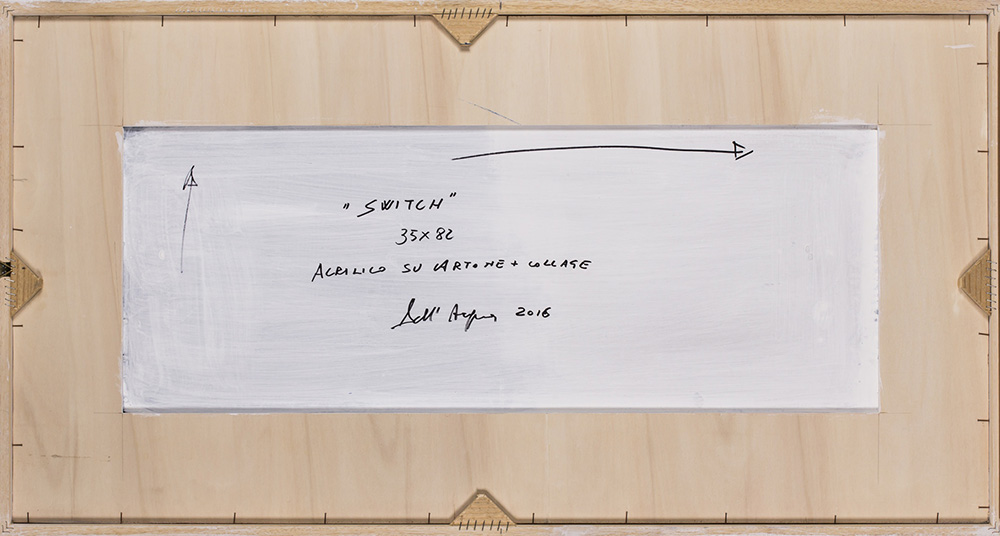 "SWITCH"
35x82
ACRILICO SU CARTONE + COLLAGE
Dell'Acqua 2016